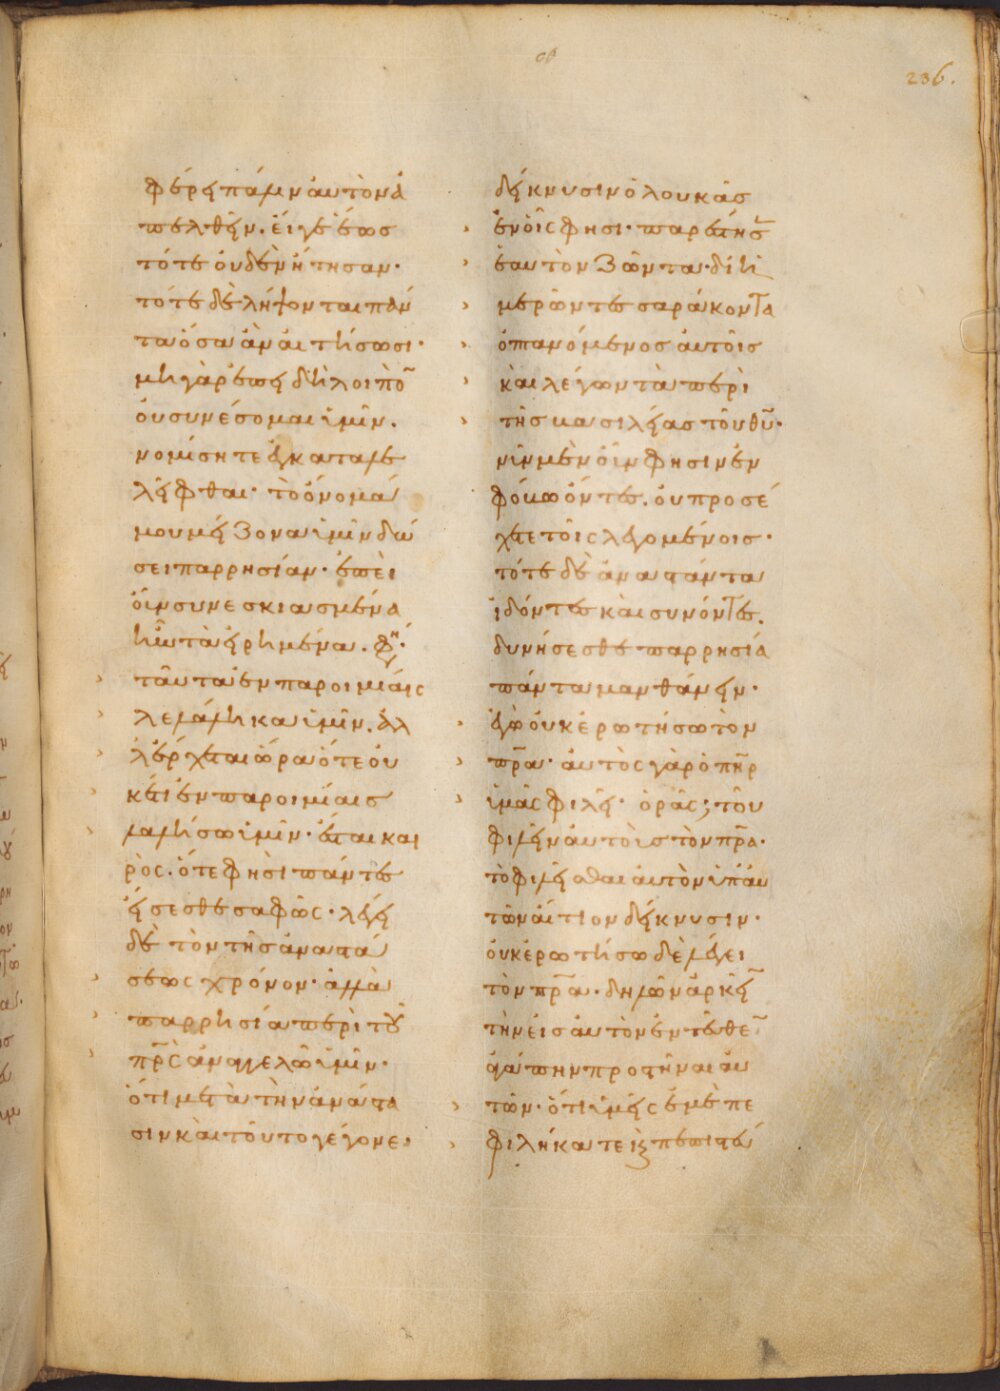 236.
φέρει πάλιν αὐτὸν ἀ
πελθεῖν. εἴ γε ἕως
τότε οὐδὲν ἤτησαν·
τότε δὲ λήψονται πάν
τα ὅσα ἂν αἰτήσωσι·
μὴ γὰρ ἐπειδὴ λοιπὸ̅
οὐ συνέσομαι ὑμῖν.
νομίσητε ἐγκαταλε
λεῖφθαι· τὸ ὄνομά
μου μείζονα ὑμῖν δώ
σει παρρησίαν· ἐπεὶ
οὖν συνεσκιασμένα
ἦν τὰ εἰρημένα. φη·
ταῦτα ἐν παροιμίαις
λελάληκα ὑμῖν. ἀλ
λ' ἔρχεται ὥρα ὅτε οὐ
κέτι ἐν παροιμίαις
λαλήσω ὑμῖν· ἔσται και
ρὸς. ὅτε φησὶ πάντα
εἴσεσθε σαφῶς· λέγει
δὲ τὸν τῆς ἀναστά
σεως χρόνον· ἀλλὰ
παρρησία περὶ τοῦ
πρ̅ς ἀναγγελῶ ὑμῖν·
ὅτι μετὰ τὴν ἀνάστα
σιν καὶ τοῦτο γέγονε·
δείκνυσιν ὁ λουκᾶς
ἐν οἷς φησι· παρέστησ̅
ἑαυτὸν ζῶντα· δι' ἡ
μερῶν τεσσαράκοντα
ὀπτανόμενος αὐτοῖς
καὶ λέγων τὰ περὶ
τῆς βασιλείας τοῦ θυ̅·
νῦν μὲν οὖν φησιν ἐν
φόβω ὄντες. οὐ προσέ
χετε τοῖς λεγομένοις·
τότε δὲ ἀναστάντα
ἰδόντες καὶ συνόντες.
δυνήσεσθε παρρησία
πάντα μανθάνειν·
ἐγὼ οὐκ ἐρωτήσω τὸν
πρ̅α· αὐτὸς γὰρ ὁ πη̅ρ
ὑμᾶς φιλεῖ· ὁρᾶς; τοῦ
φιλεῖν αὐτοὺς τὸν πρ̅α·
τὸ φιλεῖσθαι αὐτὸν ὑπ' αὐ
τῶν αἴτιον δείκνυσιν·
οὐκ ἐρωτήσω δὲ λέγει
τὸν πρ̅α· δηλῶν ἀρκεῖ̅
τὴν εἰς αὐτὸν ἐν τῶ θε̅
ἀγάπην προστῆναι αὐ
τῶν· ὅτι ὑμεῖς ἐμὲ πε
φιλήκατε καὶ πεπιστεύ